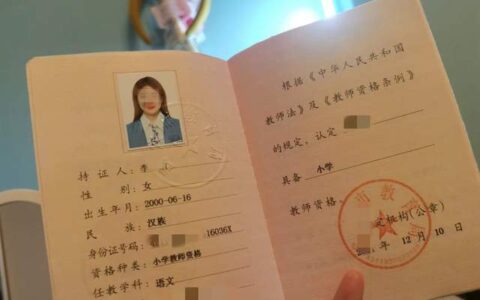 持 证 人：李
性 别：女
出生年月：2000-06-16
民 族：汉族
身份证号码：16036X
资格种类：小学教师资格
任教学科：语文
根据《中华人民共和国
教师法》及《教师资格条例》
的规定，认定
具备 小学
教师资格。
市教
定机构（公章）
12 月 10 日